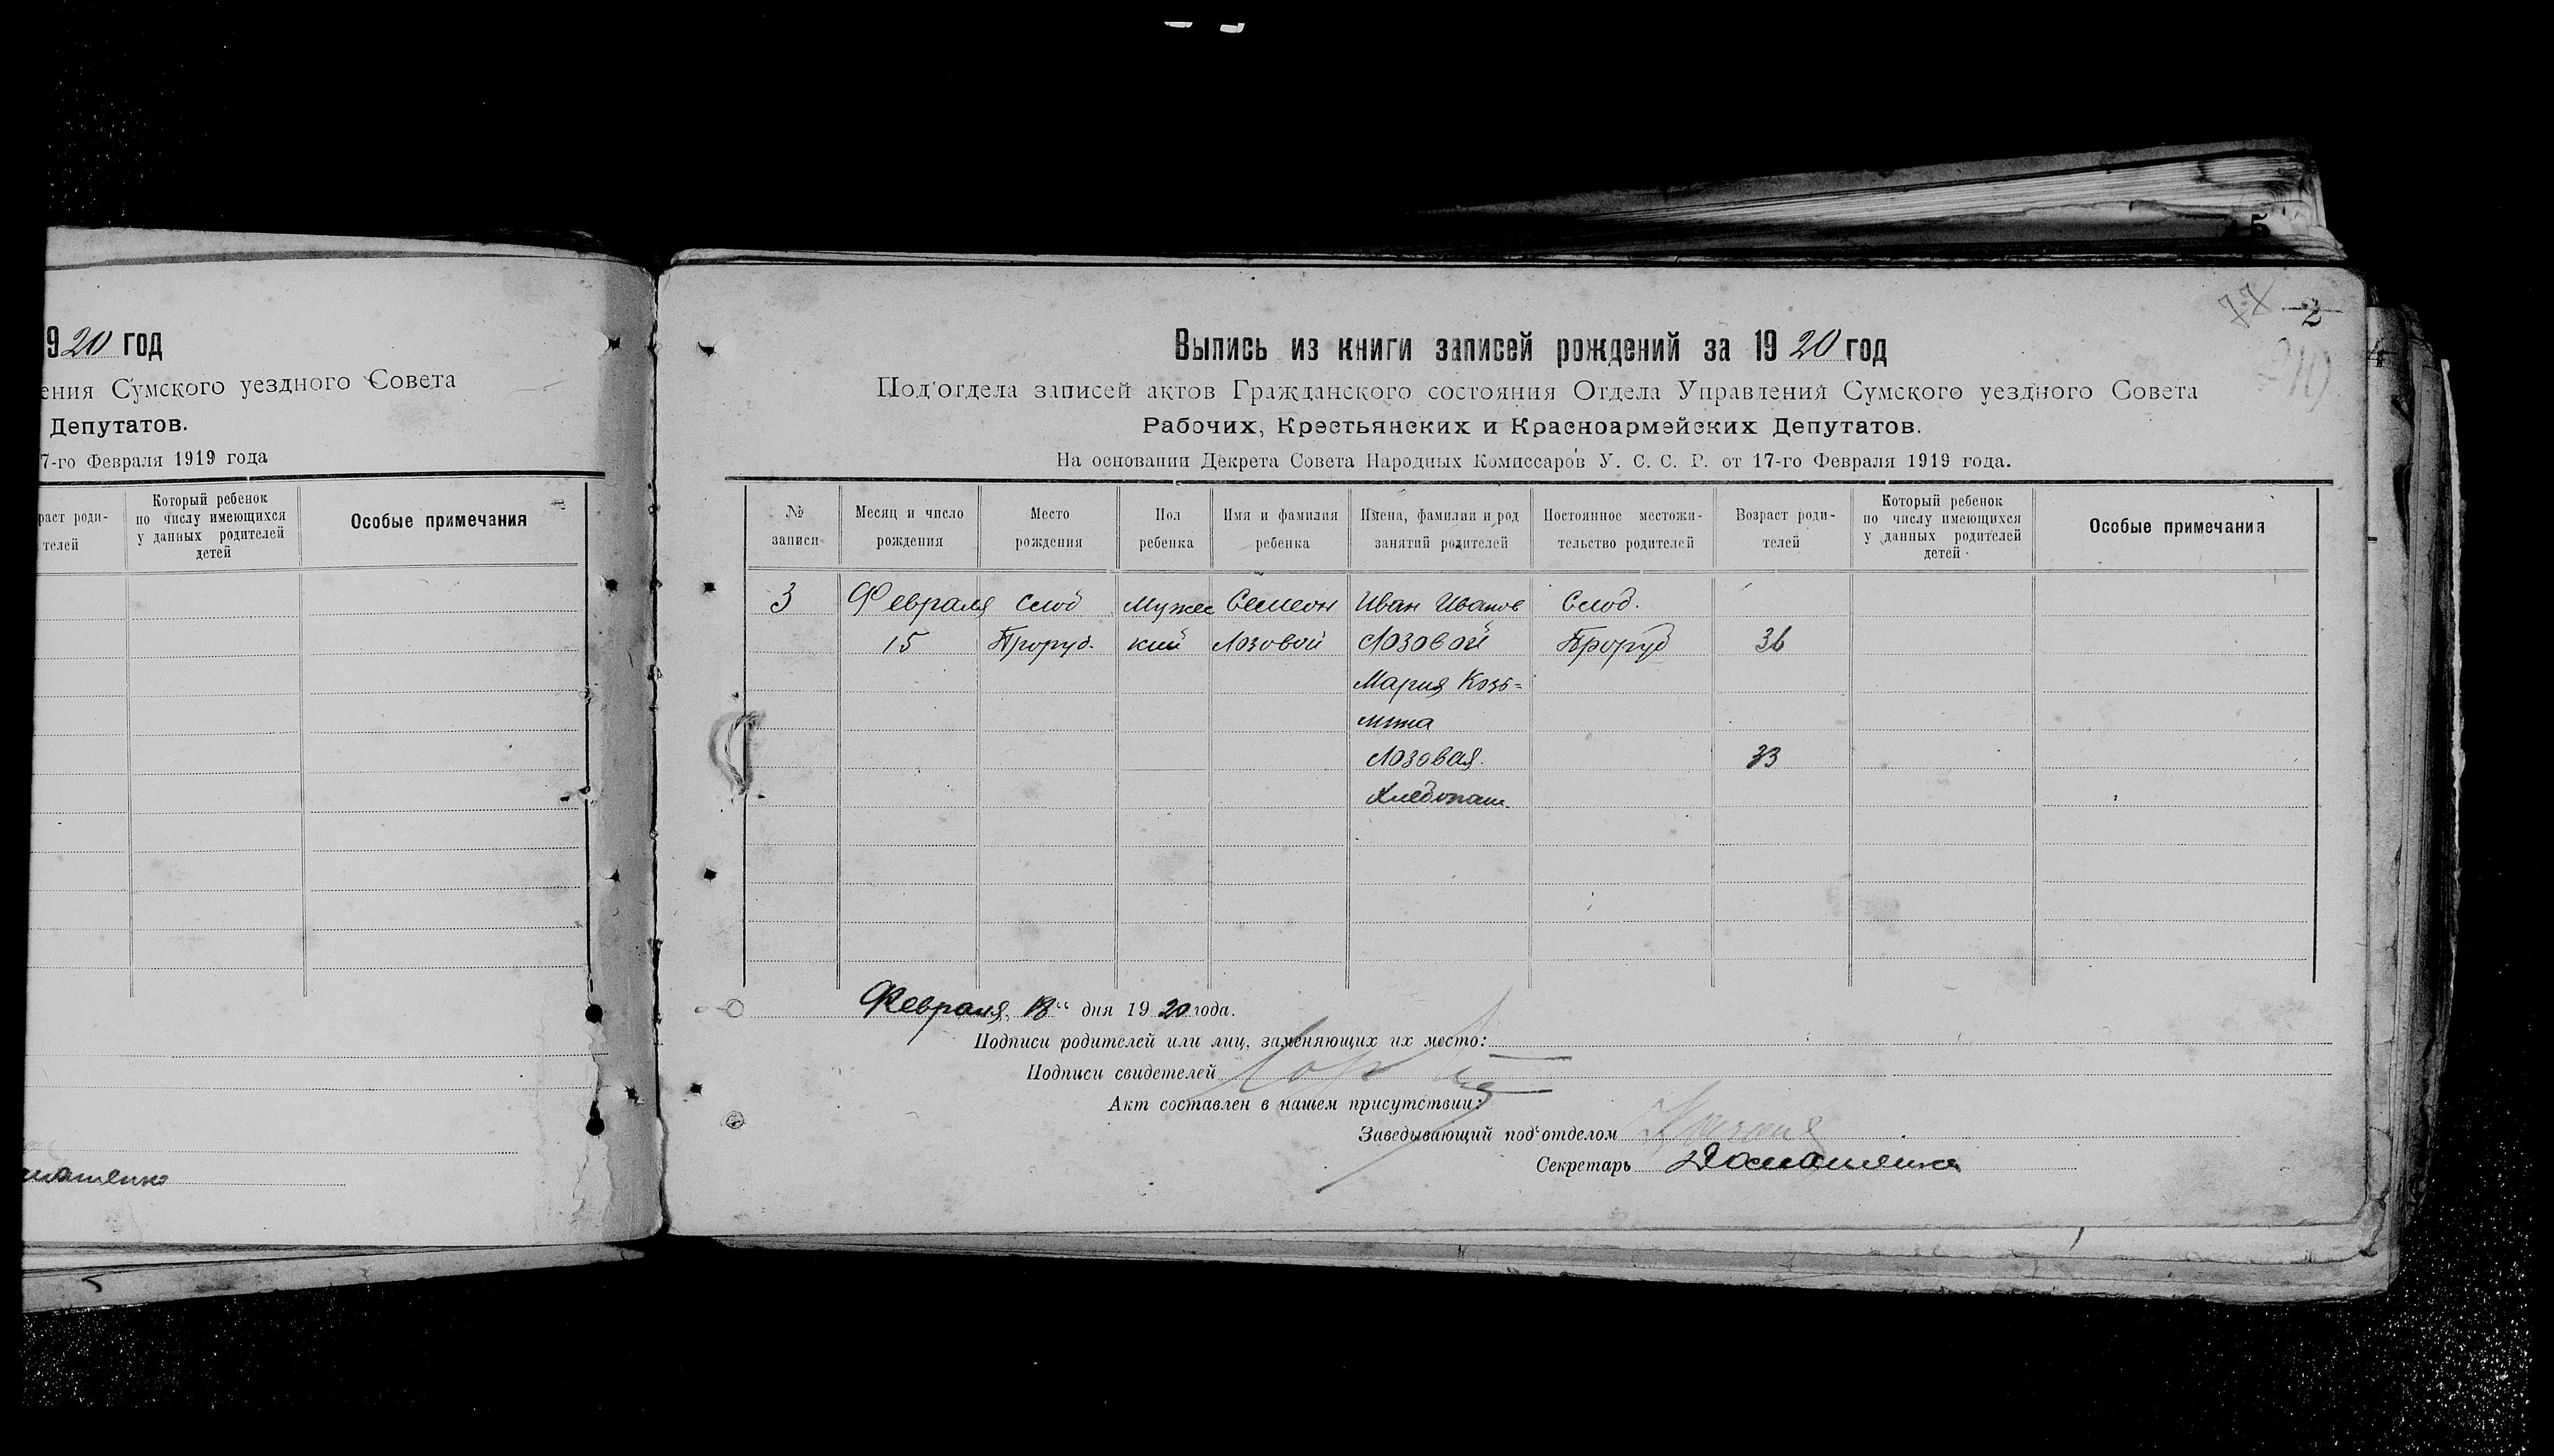 920 год
ения Сумского уездного Совета
Депутатов.
7-го Февраля 1919 года
раст роди-
телей
Который ребенок
по числу имеющихся
у данных родителей
детей
Особые примечания
5
2
Выпись из книги записей рождений за 1920 год
Под'отдела записей актов Гражданского состояния Отдела Управления Сумского уездного Совета
Рабочих, Крестьянских и Красноармейских Депутатов.
На основании Декрета Совета Народных Комиссаров У. С. С. Р. от 17-го Февраля 1919 года.
№
записи
Месяц и число
рождения
Место
рождения
Пол
ребенка
Имя и фамилия
ребенка
Имена, фамилии и род
занятий родителей
Постоянное местожи-
тельство родителей
Возраст роди-
телей
Который ребенок
по числу имеющихся
у данных родителей
детей
Особые примечания
3 Февраля Слоб Мужес Семеон Иван Иванов Слод.
15 Проруб. кий Лозовой Лозовой Проруб 36
Мария Козь=
Лозовая. 33
Хлебопаш.
Февраля 18 " дня 1920 года.
Подписи родителей или лиц, заменяющих их место:
Подписи свидетелей
Акт составлен в нашем присутствии:
Заведывающий под'отделом
Секретарь Домашенко